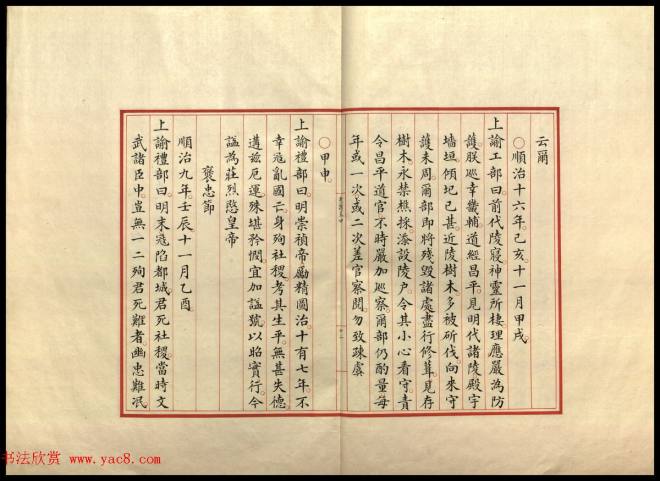 云爾
○順治十六年己亥十一月甲戌
上諭工部曰前代陵寢神靈所棲理應嚴為防
護朕巡幸畿輔道經昌平見明代諸陵殿宇
墻垣傾圮已甚近陵樹木多被斫伐向來守
護未周爾部即將殘毀諸處盡行修葺見存
樹木永禁樵採添設陵戶令其小心看守責
令昌平道官不時嚴加巡察爾部仍酌量每
年或一次或二次差官察閱勿致疎虞
○甲申
上諭禮部曰明崇禎帝勵精圖治十有七年不
幸寇亂國亡身殉社稷考其生平無甚失德
遘茲厄運殊堪矜憫宜加諡號以昭實行今
諡為莊烈愍皇帝
褒忠節
順治九年壬辰十一月乙酉
上諭禮部曰明末寇陷都城君死社稷當時文
武諸臣中豈無一二殉君死難者幽忠難泯
书法欣赏 www.yac8.com